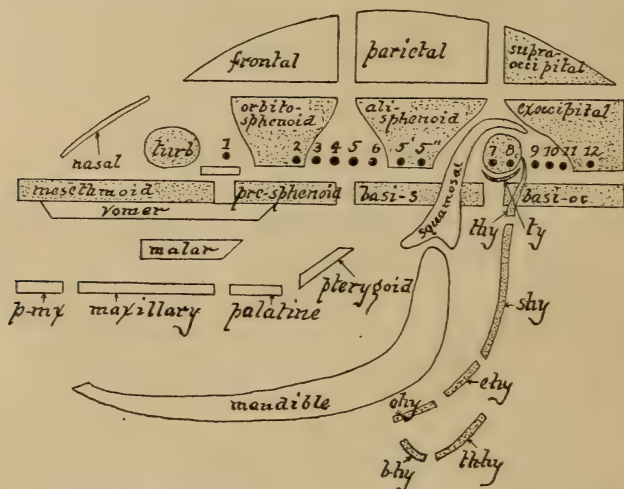 frontal
parietal
supra-
occipital
orbito-
sphenoid
ali-
sphenoid
exoccipital
nasal
turb
1
2 3 4 5 6 5' 5" 7 8 9 10 11 12
mesethmoid
pre-sphenoid
basi-s
squamosal
thy
ty
basi-oc
vomer
malar
pterygoid
p-mx
maxillary
palatine
shy
mandible
ehy
chy
bhy
thhy